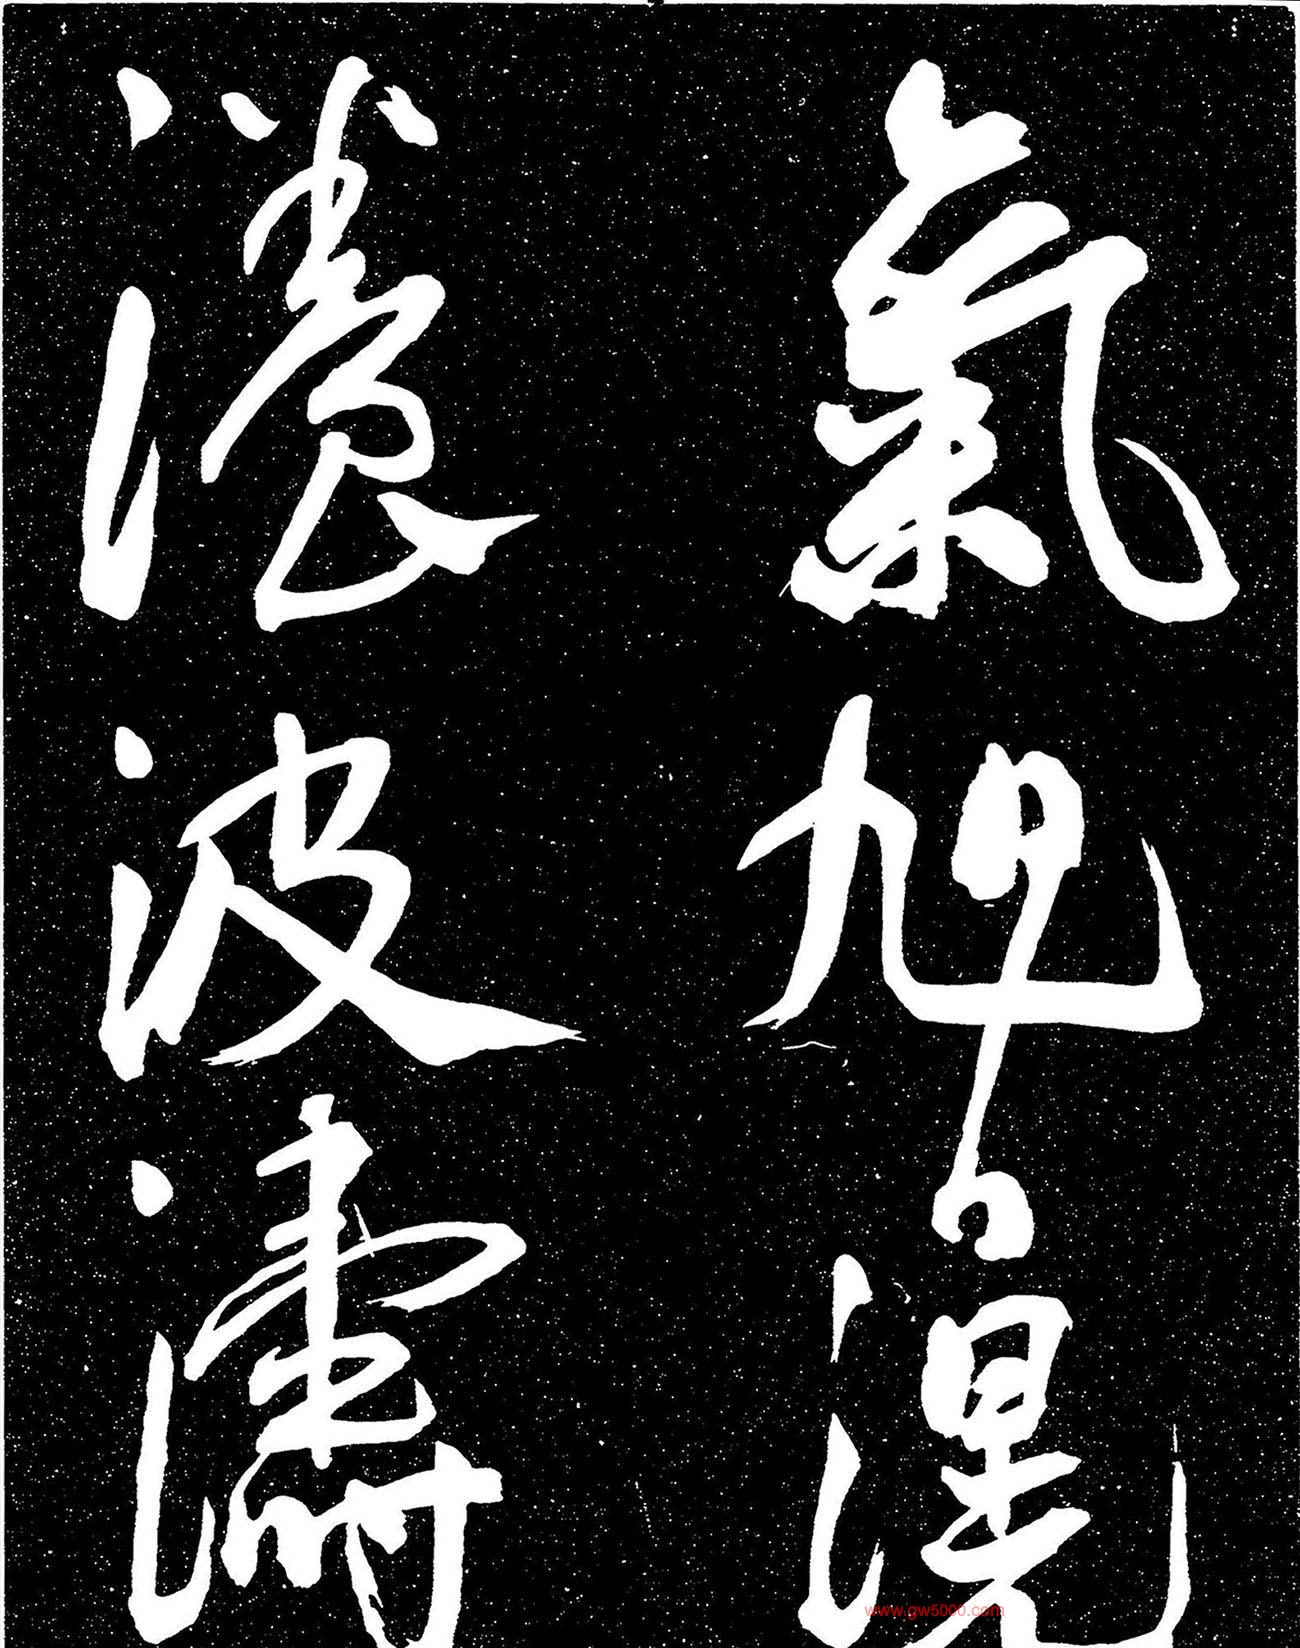 氣旭日滉
瀁波濤
www.gw5000.com